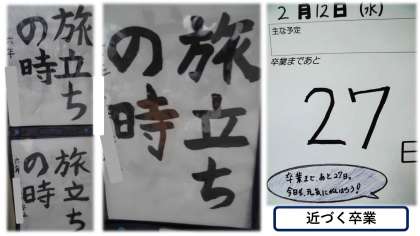 旅立ち
の時
六年
旅立ち
の時
旅立ち
の時
2月12日(水)
主な予定
卒業まであと
27
日
卒業まで、あと27日。
近づく卒業